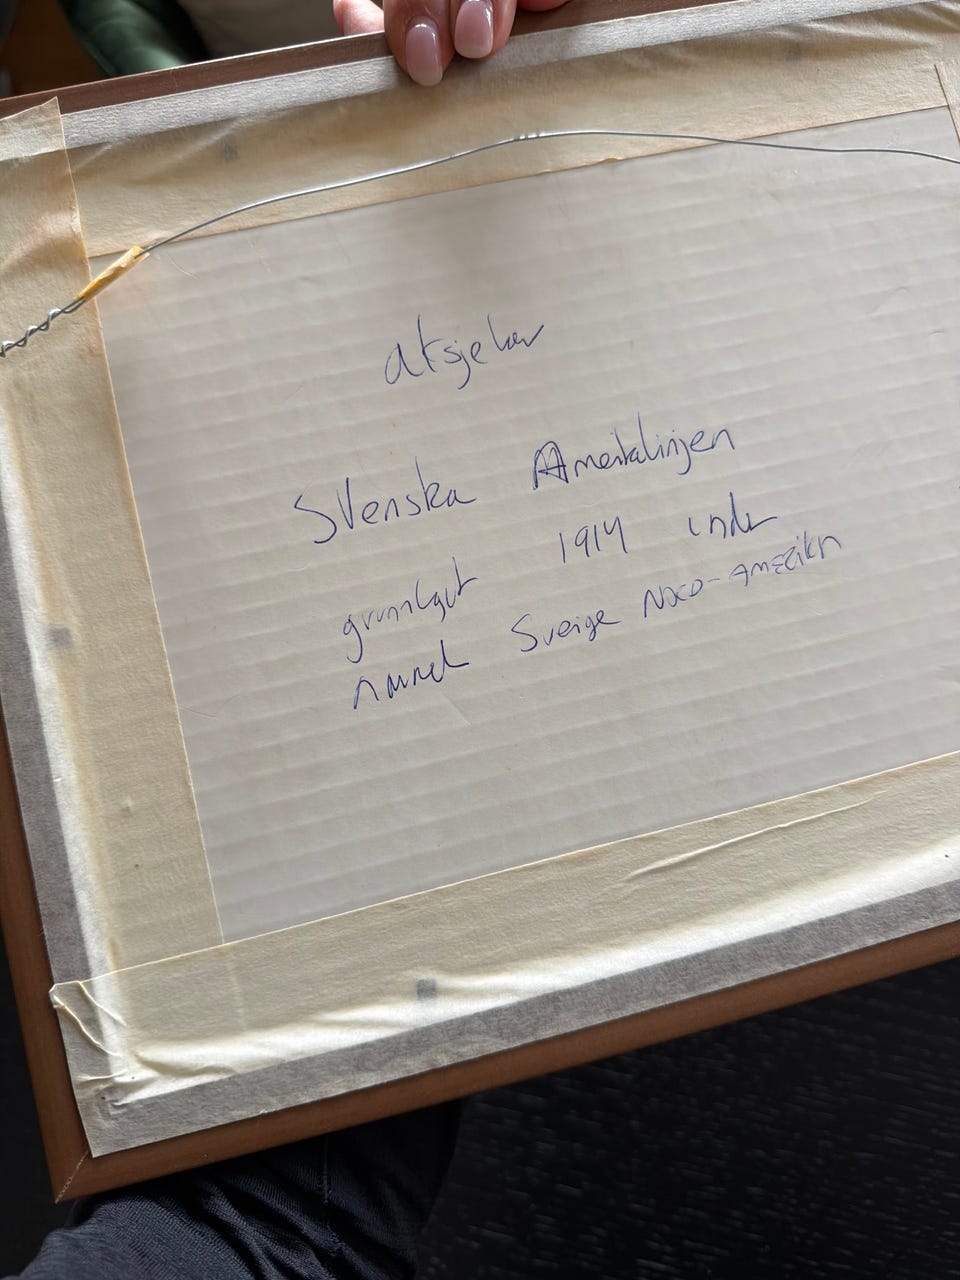 Svenska Amerikalinjen
grunnlagt 1914 under
navnet Sverige Nord-Amerika